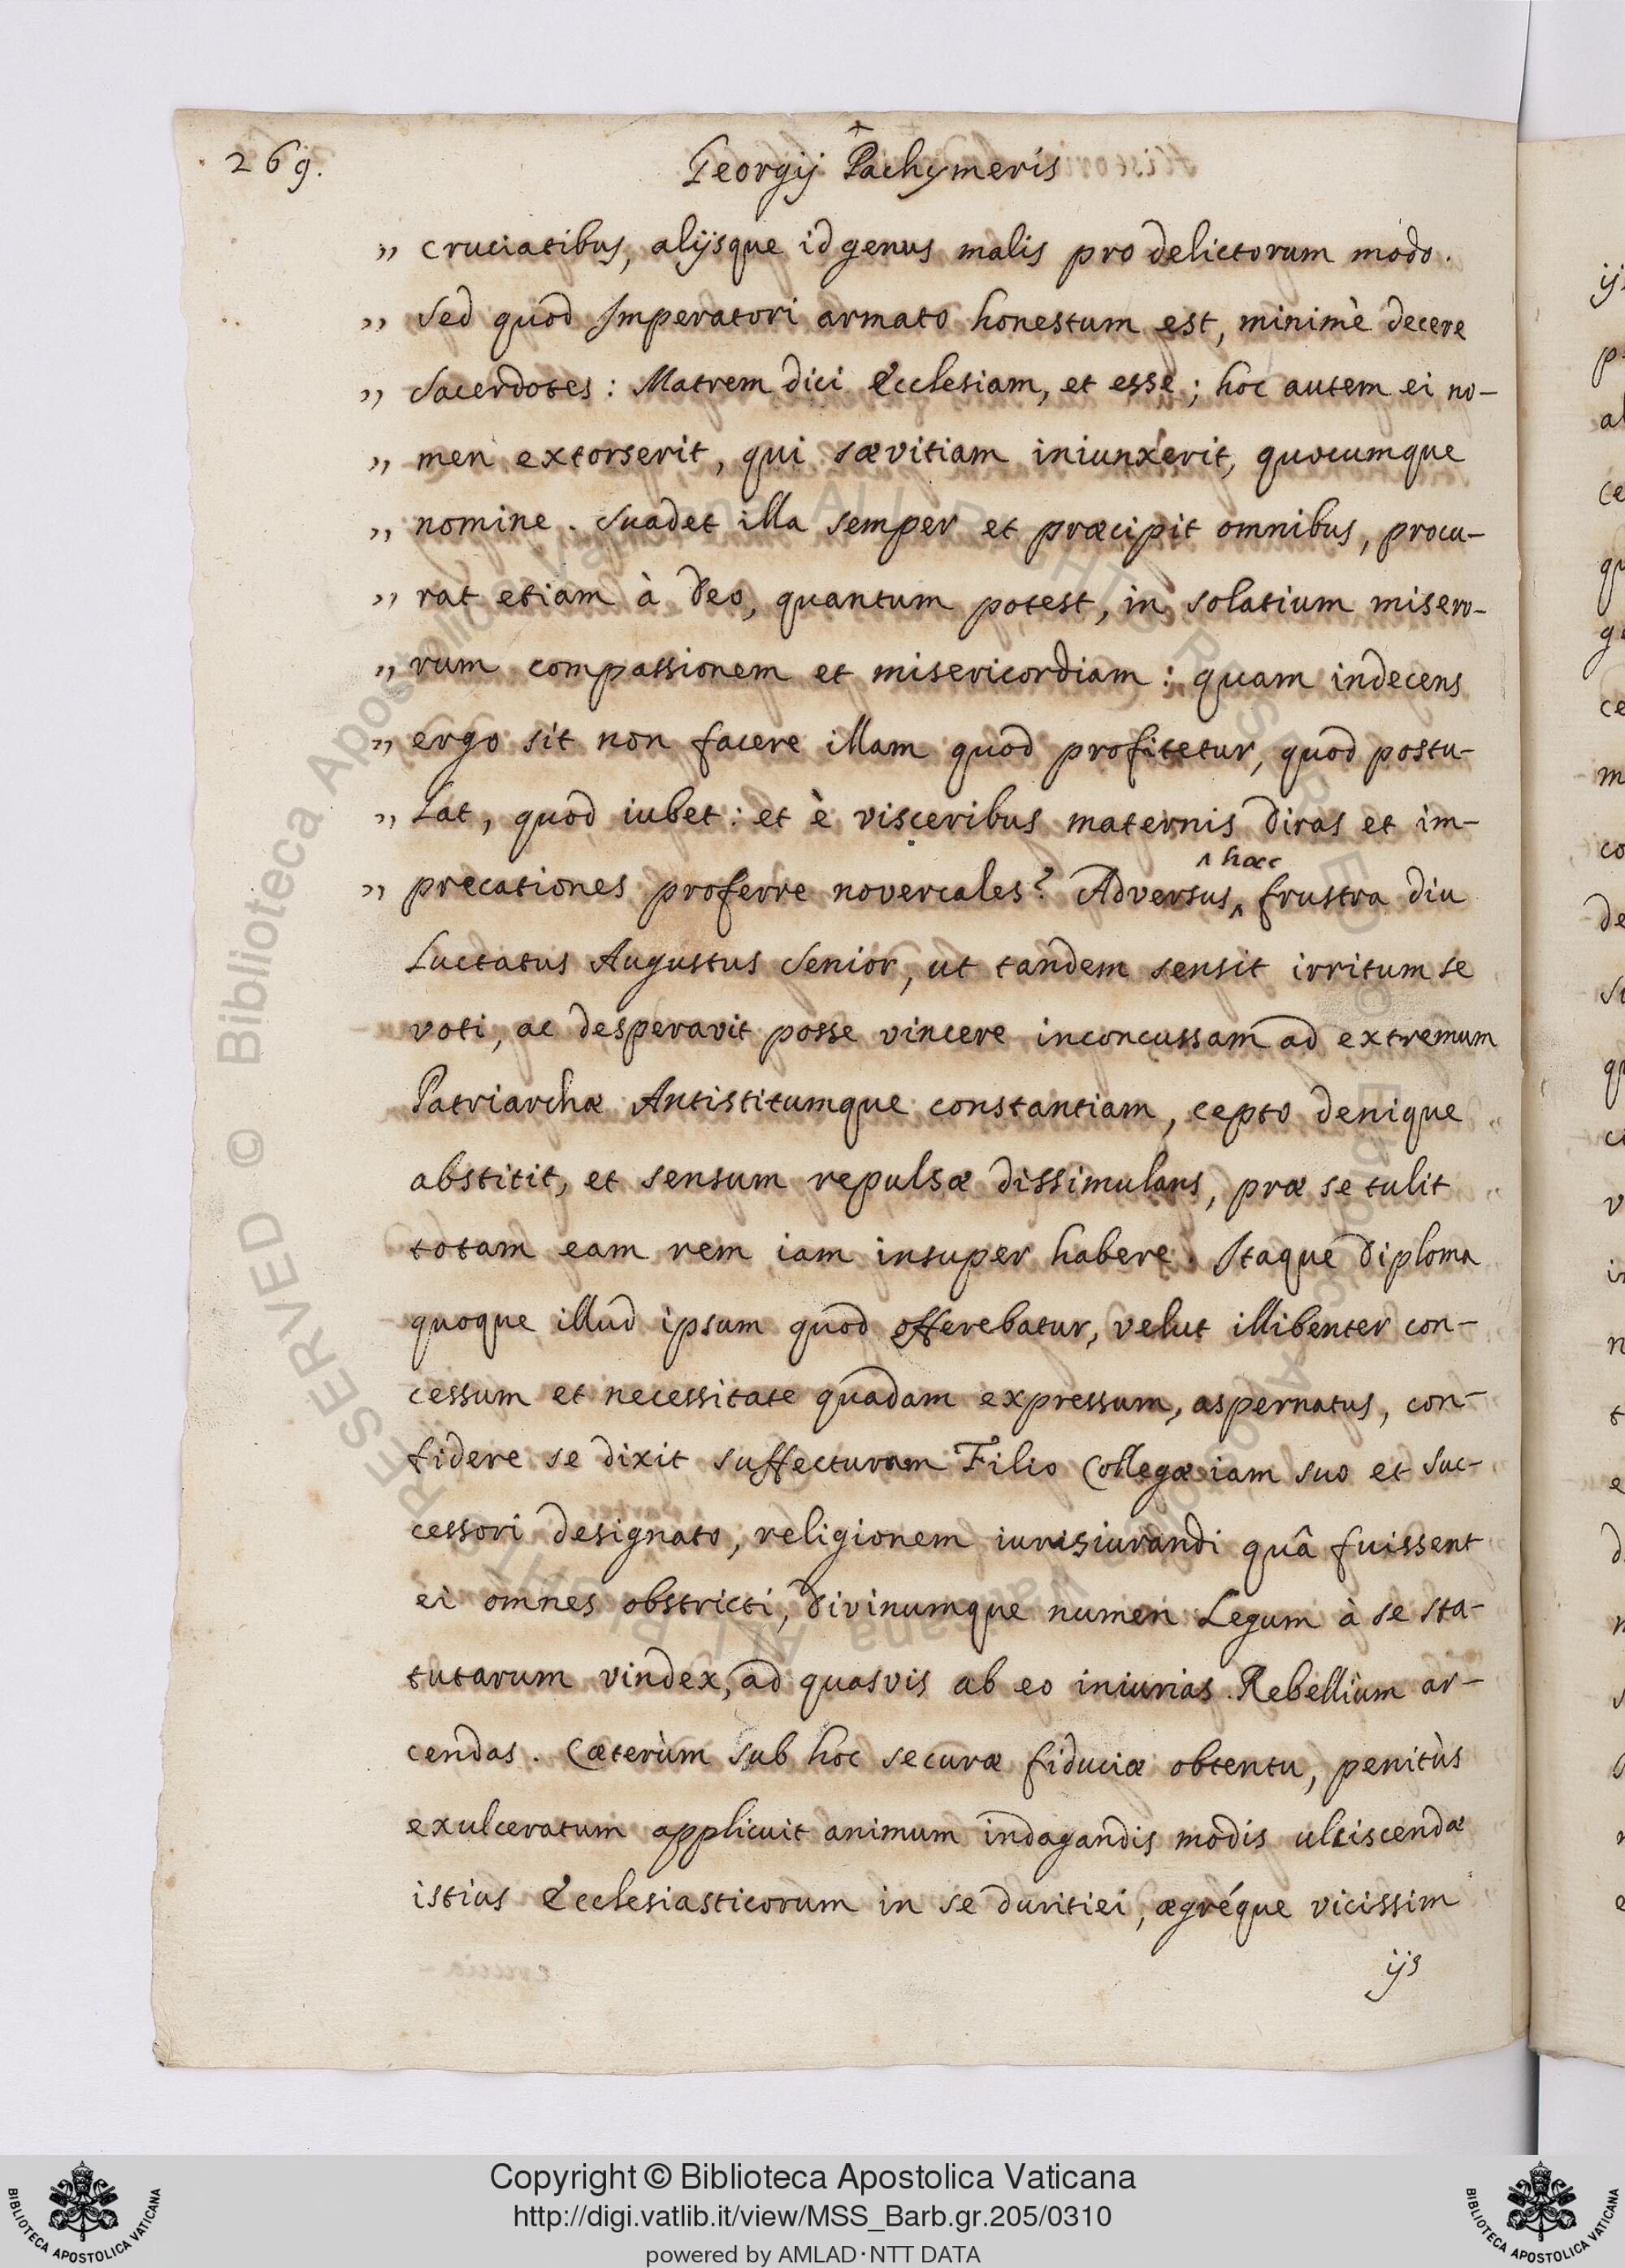 269.
Georgij Pachymeris
„ cruciatibus, alijsque id genus malis pro delictorum modo.
„ Sed quod Imperatori armato honestum est, minimè decere
„ Sacerdotes: Matrem dici Ecclesiam, et esse; hoc autem ei no-
„ men extorserit, qui sævitiam iniunxerit, quocumque
„ nomine. Suadet illa semper et præcipit omnibus, procu-
„ rat etiam à Deo, quantum potest, in solatium misero-
„ rum compassionem et misericordiam: quam indecens
„ ergo sit non facere illam quod profitetur, quod postu-
„ lat, quod iubet: et è visceribus maternis diras et im-
„ precationes proferre novercales? Adversus ^ hæc frustra diu
Luctatus Augustus Senior, ut tandem sensit irritum se
voti, ac desperavit posse vincere inconcussam ad extremum
Patriarchæ Antistitumque constantiam, cepto denique
abstitit, et sensum repulsæ dissimulans, præ se tulit
totam eam rem iam insuper habere. Itaque diploma
quoque illud ipsum quod offerebatur, velut illibenter con-
cessum et necessitate quadam expressum, aspernatus, con-
fidere se dixit suffecturam Filio Collegæ iam suo et suc-
cessori designato, religionem iurisiurandi quâ fuissent
ei omnes obstricti, divinumque numen Legum à se sta-
tutarum vindex, ad quasvis ab eo iniurias Rebellium ar-
cendas. Cæterùm sub hoc securæ fiduciæ obtentu, penitùs
exulceratum applicuit animum indagandis modis ulciscendæ
istius Ecclesiasticorum in se duritiei, ægréque vicissim
ijs
Copyright © Biblioteca Apostolica Vaticana
http://digi.vatlib.it/view/MSS_Barb.gr.205/0310
powered by AMLAD·NTT DATA
BIBLIOTECA APOSTOLICA VATICANA
BIBLIOTECA APOSTOLICA VATICANA